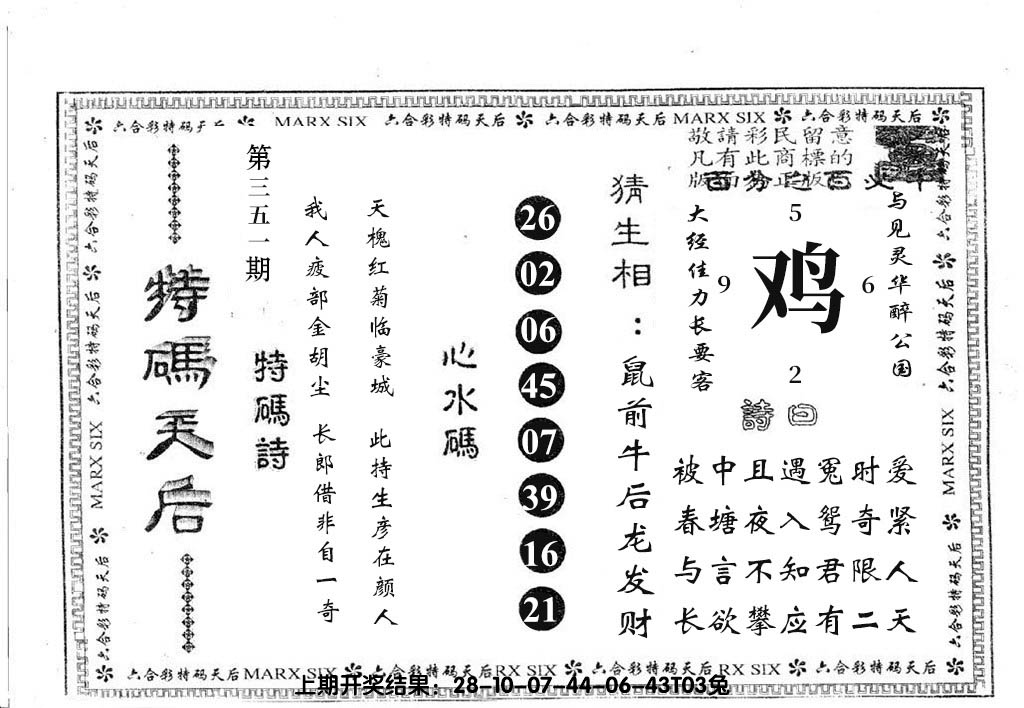 六合彩特码天后 MARX SIX 六合彩特码天后 六合彩特码天后 MARX SIX 六合彩特码天后
敬請彩民留意
凡有此商標的
版面为正版
第三五一期
特碼天后
特碼詩
我人疲部金胡尘 长郎借非自一奇
天槐红菊临豪城 此持生彦在颜人
心水碼
26
02
06
45
07
39
16
21
猜生相：鼠前牛后龙发财
大经佳力长要客
5
9
鸡
6
2
与见灵华醉公国
詩曰
被中且遇冤时爱
春塘夜入鸳奇紧
与言不知君限人
长欲攀应有二天
六合彩特码天后 MARX SIX 六合彩特码天后
六合彩特码天后 MARX SIX 六合彩特码天后
六合彩特码天后 MARX SIX 六合彩特码天后 RX SIX 六合彩特码天后 RX SIX 六合彩特码天后
上期开奖结果：28-10-07-44-06-43T03兔